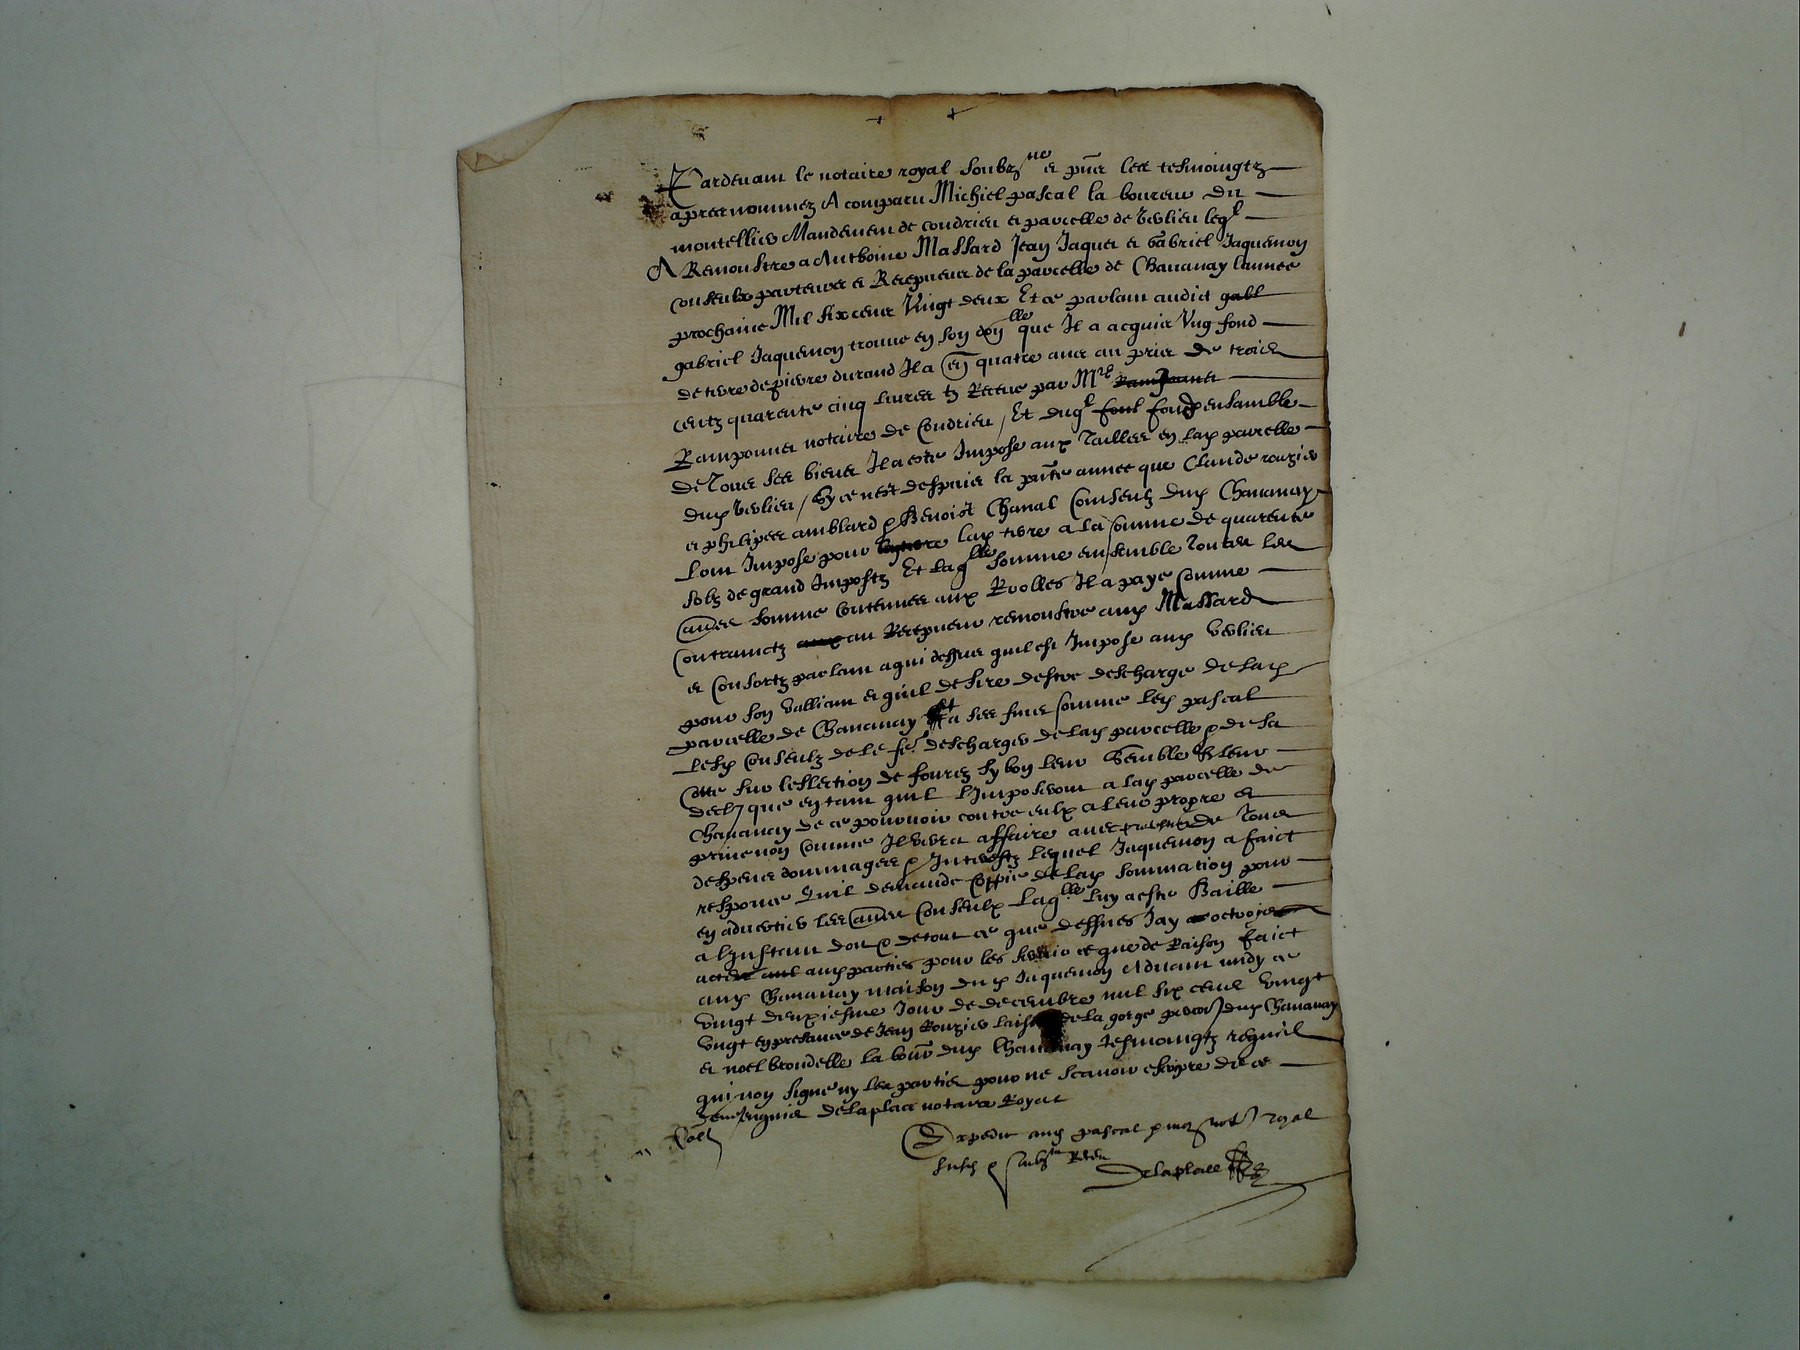 Pardevant le notaire royal soubzne et pnts les tesmoingtz
apres nommez A comparu Michiel pascal laboureur du
montellier Mandement de condrieu et parcelle de Verlieu leql
A Remonstre a Anthoine Massard Jean Jaquet et Gabriel Jaquemon
consulz parteurs et Recepveurs de la parcelle de Chavanay lannee
prochaine Mil six cens Vingt deux Et ce parlant audict gabl
gabriel Jaquemon trouve en son domlle que Il a acquis Ung fond
de terre de pierre durand Il a quatre ans au pris de trois
centz quarente cinq livres tz Receue par Mre
Ramponnet notaire de Condrieu / Et duql font fond ensamble
de Tous ses biens Il a este Impose aux Tailles en lad parcelle
dud Verlieu / Sy ce nest despuis la pnte annee que Claude rouzier
et philipes amblard & Benoist Chanal Consulz dud Chavanay
Lont Impose pour lad terre a la somme de quarente
solz de grand Impostz Et laqlle somme ensemble Toutes les
aues somme contenues aux Rolles Il a paye comme
Contrainctz au Recepveur remonstre aud Massard
et Consortz parlant a qui dessus quil est Impose aud Verlieu
pour son vaillant et quil desire destre descharge de lad
parcelle de Chavanay Et a ses fins somme led pascal
Lesd Consulz de le fe descharger de lad parcelle & de sa
Cotte sur leslection de fourez sy bon leur Semble & leur
decl que en tant quil l'Imposeront a lad parcelle de
Chavanay de ce pourvoir contre eulx a leur propre et
prive nom Comme Il verra affaire avec de Tous
despens dommages & Interestz lequel Jaquemon a faict
response quil demande Coppie de lad sommation pour
en advertir les aues Consulx Laqlle luy a este Baille
a l'Instant dont & de tout ce que dessus Jay octroye
acte aud parties pour les servir ce que de Raison faict
aud Chavanay maison dud Jaquemon Advant midy ce
vingt deuxiesme Jour de decembre mil six cens vingt
ung en presance de Jean Rouzier de la gorge dud Chavanay
et noel brondelle labour dud Chavanay tesmoingtz requis
qui non signe ny les parties pour ne scavoir escripre de ce
enquis delaplace notaire Royal
Coll
Expedie aud pascal p moy not royal
susd & soubz
Delaplace